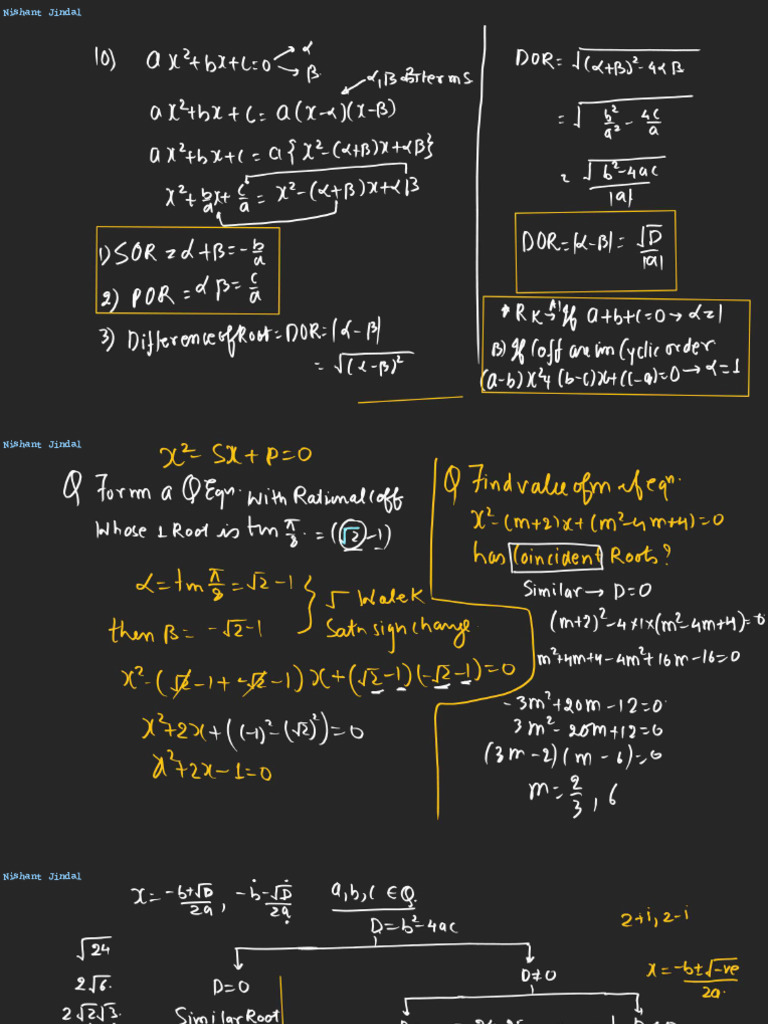 Nishant Jindal
10) ax²+bx+c=0 → α
→ β
α,β terms
ax²+bx+c = a(x-α)(x-β)
ax²+bx+c = a{x²-(α+β)x+αβ}
x²+b/a x+c/a = x²-(α+β)x+αβ
1) SOR = α+β = -b/a
2) POR = αβ = c/a
3) Difference of Root = DOR = |α-β|
= √(α-β)²
DOR = √(α+β)²-4αβ
= √b²/a² - 4c/a
= √b²-4ac/|a|
DOR = |α-β| = √D/|a|
* RK → A) If a+b+c=0 → α=1
B) If Coff are in Cyclic order
(a-b)x²+(b-c)x+(c-a)=0 → α=1
Nishant Jindal
x²-Sx+P=0
Q Form a Q Eqn. with Rational Coff
Whose 1 Root is tan π/8. = (√2-1)
α = tan π/8 = √2-1
then β = -√2-1
√ Wale K
Sath sign change.
x²-(√2-1+-√2-1)x+(√2-1)(-√2-1)=0
x²+2x+((-1)²-(√2)²)=0
x²+2x-1=0
Q Find value of m if eqn.
x²-(m+2)x+(m²-4m+4)=0
has Coincident Roots?
Similar → D=0
(m+2)²-4×1×(m²-4m+4)=0
m²+4m+4-4m²+16m-16=0
-3m²+20m-12=0
3m²-20m+12=0
(3m-2)(m-6)=0
m=2/3, 6
Nishant Jindal
x = -b+√D/2a, -b-√D/2a
a,b,c ∈ Q
D=b²-4ac
2+i, 2-i
√24
2√6.
2√2√3.
D=0
Similar Root
D≠0
x = -b±√-ve/2a.